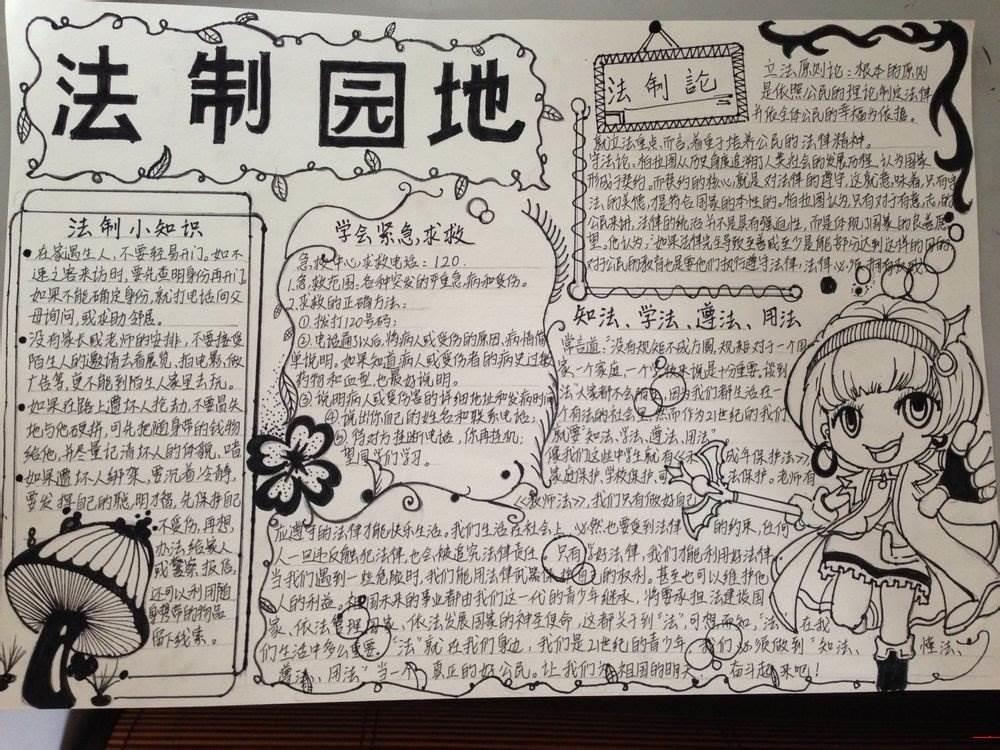 法制园地
法制小知识
在家遇生人，不要轻易开门。如不
速之客来访时，要先查明身份再开门
如果不能确定身份，就打电话向父
母询问，或求助邻居。
没有家长或老师的安排，不要接受
陌生人的邀请去看展览，拍电影，做
广告等，更不能到陌生人家里去玩。
如果在路上遭坏人抢劫，不要冒失
地与他硬拼，可先把随身带的钱物
给他，并尽量记清坏人的体貌、
如果遭坏人绑架，要沉着冷静，
要发挥自己的聪明才智，先保护自己
不受伤，再想
办法给家人
或警察报信，
还可以利用随
身携带的物品
留下线索。
学会紧急求救
急救中心求救电话：120.
1.急救范围：各种突发的严重急病和受伤。
2.求救的正确方法：
①拨打120号码；
②电话通了以后，将病人或受伤的原因，病情简
单说明。如果知道病人或受伤者的病史过敏
药物和血型，也最好说明。
③说明病人或受伤者的详细地址和发病时间
④说出你自己的姓名和联系电话；
⑤待对方挂断电话，你再挂机；
望同学们学习。
法制論
立法原则论：根本的原则
是依照公民的理论制定法律
并依全体公民的幸福为依据。
就立法重点而言，着重于培养公民的法律精神。
守法论，柏拉图从历史角度追溯了人类社会的发展历程，认为国家
形成于契约，而契约的核心就是对法律的遵守，这就意味着，只有守
法的美德，才是符合国家的本性的。柏拉图认为，只有对于有意志的
公民来讲，法律的统治并不是具有强迫性，而是体现了国家的良善愿
望。他认为："如果法律完全导致至善或至少是能部分达到这样的目的
对于公民的教育也是要他们执行遵守法律，法律必须拥有权威
知法、学法、遵法、用法
常言道："没有规矩不成方圆，规矩对于一个国
家、一个家庭、一个学校来说是十分重要，谈到
法"大家都不会陌生，因为我们都生活在一
个有法的社会里。然而作为21世纪的我们
就要"知法、学法、遵法、用法"。
像我们这些中学生就有《未成年保护法》，
家庭保护，学校保护，司法保护。老师有
《教师法》，我们只有做好自己
应遵守的法律才能快乐生活。我们生活在社会上，必然也要受到法律的约束，任何
人一旦违反触犯法律，也会被追究法律责任。只有学好法律，我们才能利用好法律
当我们遇到一些危险时，我们能用法律武器保护自己的权利。甚至也可以维护他
人的利益。祖国未来的事业都由我们这一代的青少年继承，将要承担法建设国
家、依法管理国家、依法发展国家的神圣使命，这都关于到"法"，可想而知，"法"在我
们生活中多么重要。"法"就在我们身边，我们是21世纪的青少年，我们必须做到"知法、懂法、
遵法、用法"当一个真正的好公民。让我们为祖国的明天，奋斗起来吧！